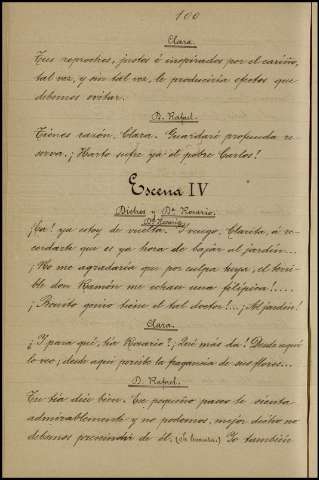 100
Clara.
Tus reproches, justos é inspirados por el cariño,
tal vez, y sin tal vez, le producirían efectos que
debemos evitar.
D. Rafael.
Tienes razón, Clara. Guardaré profunda re-
serva. ¡Harto sufre ya el pobre Carlos!
Escena IV
Dichos y Dª Rosario.
Dª Rosario
¡Ea! ya estoy de vuelta. Vengo, Clarita, á re-
cordarte que es ya hora de bajar al jardín...
¡No me agradaría que por culpa tuya, el terri-
ble don Ramón me echase una filípica!....
¡Bonito genio tiene el tal doctor!... ¡Al jardín!
Clara.
¿Y para qué, tía Rosario? ¡Qué más da! Desde aquí
lo veo; desde aquí percibo la fragancia de sus flores...
D. Rafael.
Tu tía dice bien. Ese pequeño paseo te sienta
admirablemente y no podemos, mejor dicho no
debemos prescindir de él. Yo también